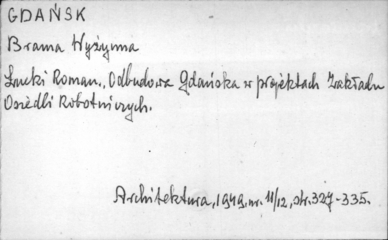 GDAŃSK
Brama Wyżynna
Łucki Roman., Odbudowa Gdańska w projektach Zakładu
Osiedli Robotniczych.
Architektura, 1949, nr. 11/12, str. 327-335.